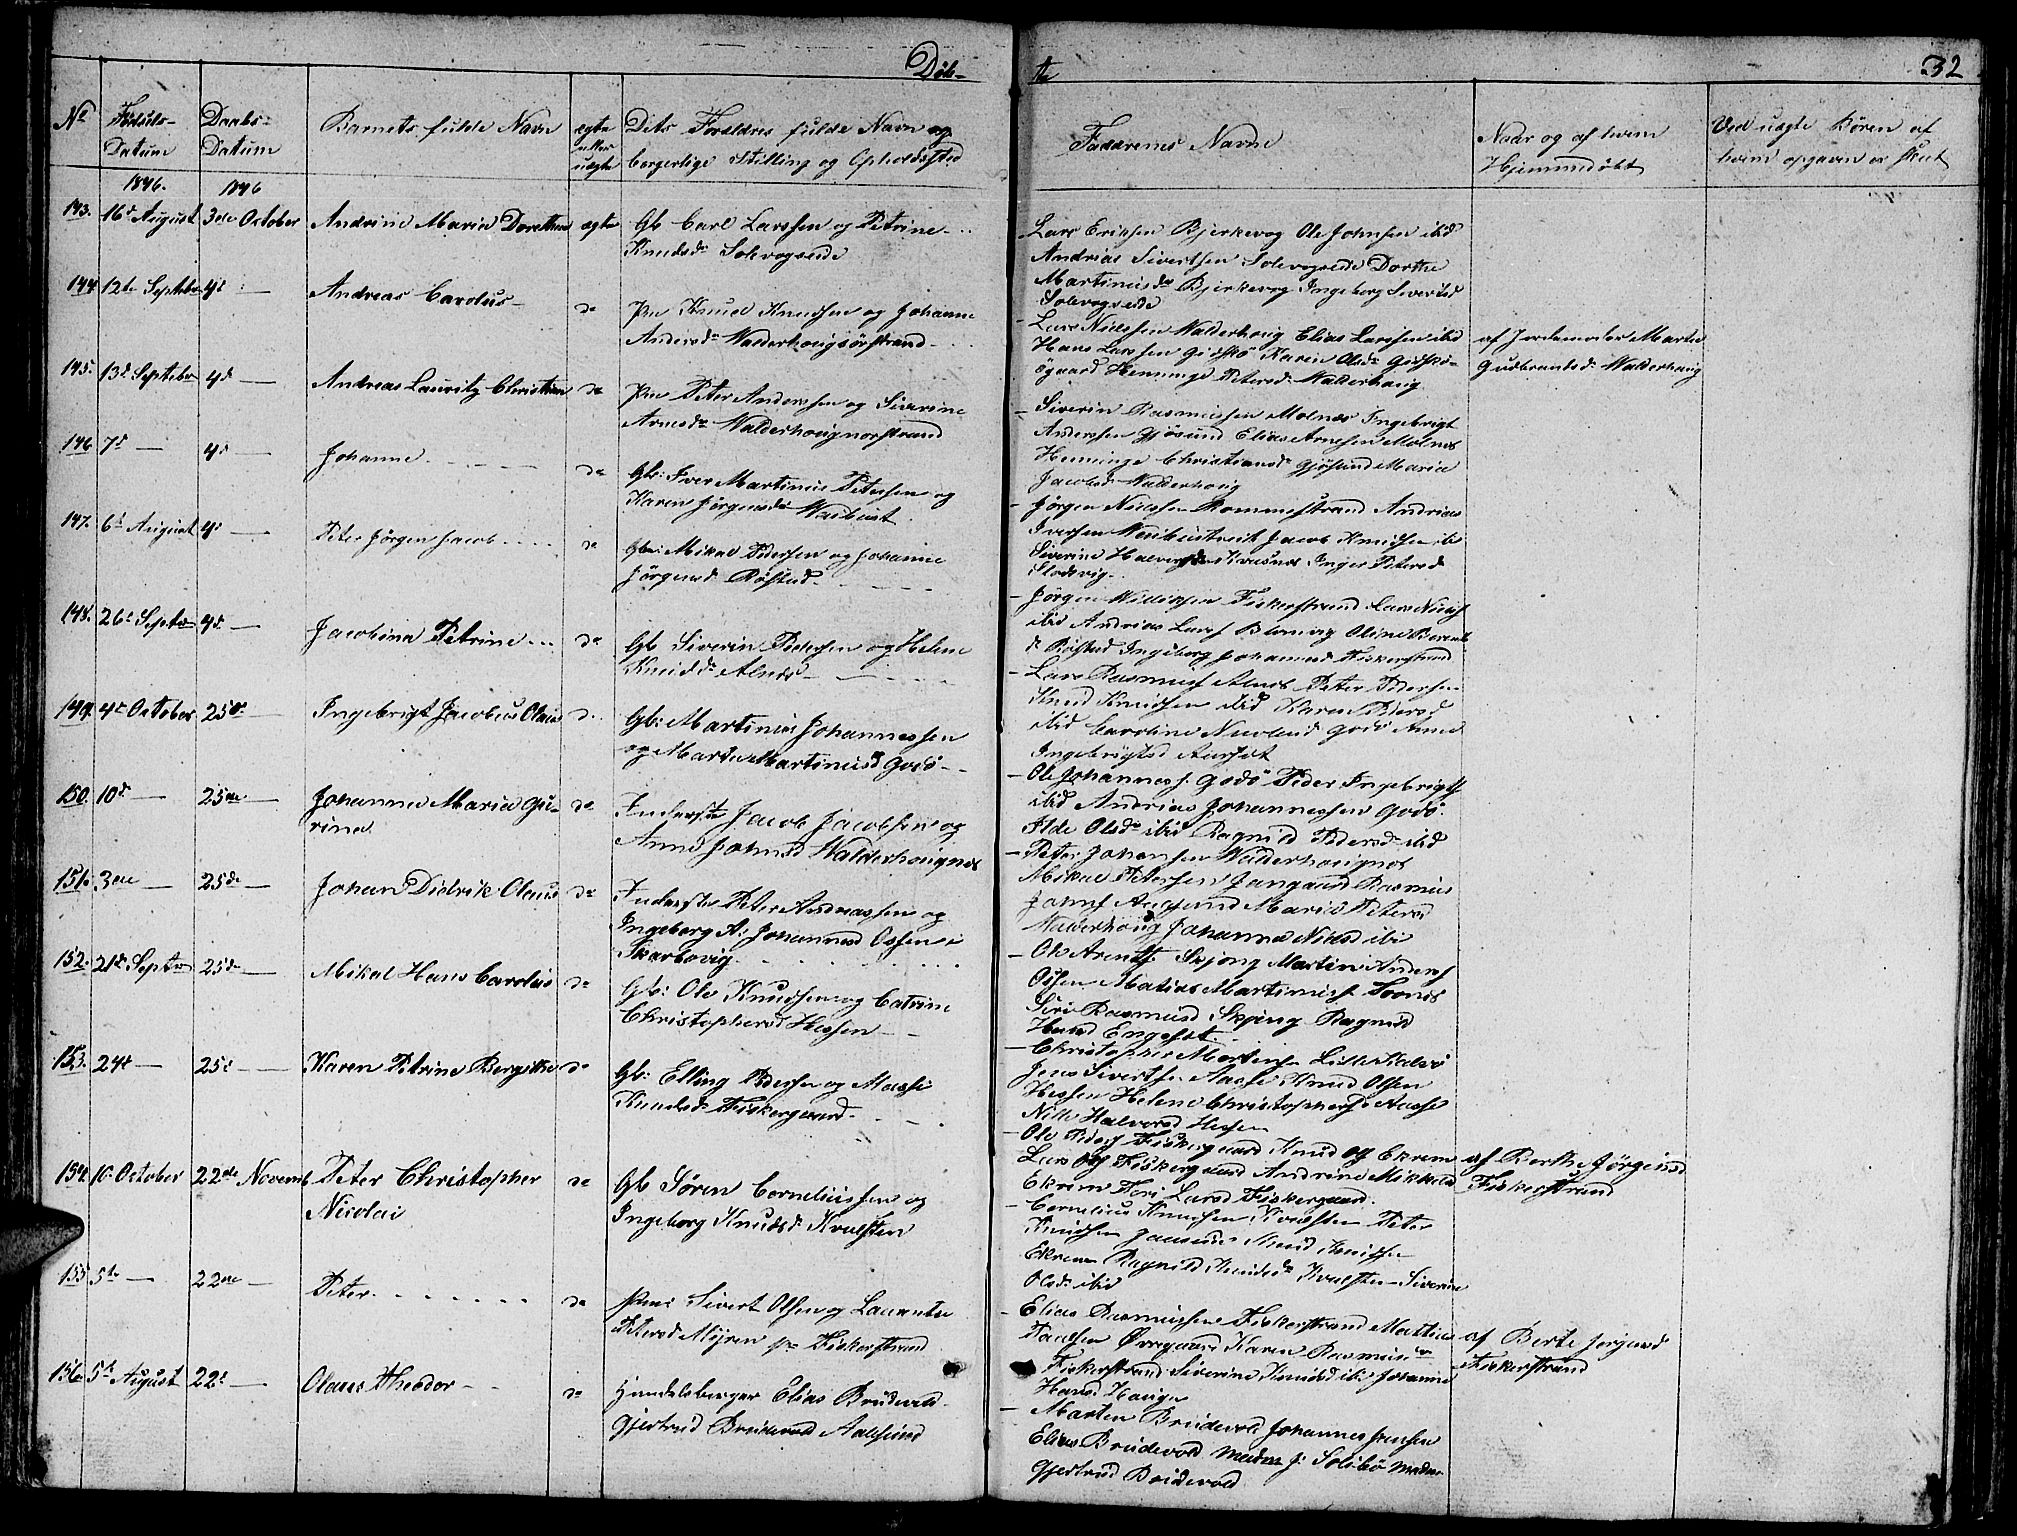 Døb-
te
32
No
Fødsels-
Datum
Daabs-
Datum
Barnets fulde Navn
ægte
eller
uægte
Dets Forældres fulde Navn og
borgerlige Stilling og Opholdsted
Faddrenes Navne
Naar og af hvem
Hjemmedøbt
Ved uægte Børen af
hvem opgaven er skeet
1846.
1846
143. 16d August 3die October Andrine Maria Dorethea ægte Gb Carl Larssen og Petrine
Knudsdr Solevogseide
Lars Eriksen Bjerkevog Ole Johnsen ibid
Andrias Sivertsen Solevogseide Dorthe
Martinusdr Bjerkevog Ingeborg Sivertsd
Solevogseide
144 12te Septeber 4d Andreas Carolus do Pm Knud Knudsen og Johanne
Andersdr Walderhougsørstrand
Lars Nielssen Walderhoug Elias Larssen ibid
Hans Larssen Gidskø Karen Olsdr Gidskø-
øgaard Henninge Petersd Walderhoug
af Jordemoder Marte
Gudbrandsdr Walderhoug
145. 13d Septeber 4d Andreas Lauritz Christian do Pm Peter Anderssen og Siverine
Arnesdr Walderhougnorstrand
Siverin Rasmussen Molnes Ingebrigt
Anderssen Gjøsund Elias Arnesen Molnes
Henninge Christiansd Gjøsund Maria
Jacobsd Walderhoug
146. 7d 4d Johanne do Gb: Iver Martinus Petersen og
Karen Jørgensdr Weibust
Jørgen Nielssen Rommestrand Andrias
Iversen Weibust Jacob Knudsen ibi
Siverine Halvorsdr Kvasnes Inger Petersd
Slodsvig
147. 6d August 4d Peter Jørgen Jacob do Gbr: Mikal Pedersen og Johanne
Jørgensd Røstad
Jørgen Fiskerstrand Lars Niels
ibid Andrias Lars Blomvig Oline Berent
d Røstad Ingeborg Johannesd Fiskerstrand
148. 26d Septbr 4d Jacobina Petrine do Gb Siverin Pedersen og Helene
Knudsdr Alnes
Lars Rasmuss Alnes Peter Pedersen
Knud Knudssen ibid Karen Pedersd
ibid Caroline Godø Anne
Ingebrigtsd Aurset
149. 4d October 25de Ingebrigt Jacobus Olaus do Gb: Martinus Johannessen
og Marte Martinusd Godø
Ole Johanness. Godø Peder Ingebrigts
ibid Andrias Johannessen Godø
Ilde Olsdr ibid Ragnild Pedersd ibid
150. 10d 25de Johanna Maria Gu-
rina
do Inderste Jacob Jacobsen og
Anne Johnsd Walderhougnes
Peter Johansen Walderhougnes
Mikal Petersen Rasmus
Johns Maria Petersd
Walderhoug Johanna Nielsd ibi
151. 3die 25de Johan Didrik Olaus do Inderste Peter Andreassen og
Ingeborg A: Johannesd Ossen i
Skarbovig
Ole Arents Skjong Martin Anders
Ossen Matias Martinuss
Siri Rasmusd Skjong Ragnild
Hansd Engeset
152. 21de Septbr 25de Mikal Hans Carolus do Gb: Ole Knudsen og Catrine
Christophersd Hessen
Christopher Mortens Lille Kalvø
Jens Sivertsen Aasse Knud Olsen
Hessen Helene Christophersd Aasse
Nille Halvorsd Hessen
153. 24d 25d Karen Petrine Bergithe do Gb: Elling Pedersen og Massi
Knudsdr Fiskergaard
Ole Peders Fiskergaard Knud og Ekrem
Lars Ols Fiskergaard Andrine Mikkelsd
Ekrem Larsd Fiskergaard
af Berthe Jørgensd
Fiskerstrand
154. 10 October 22de Novemb Peter Christopher
Nicolai
do Gb Søren Corneliussen og
Ingeborg Knudsdr Kvalsten
Cornelius Knudsen Kvalsten Peter
Knudsen Knud Knudsen
Ekrem Ragnild Knudsdr Kvalsten Siverine
Olsdr ibid
155 5te 22de Peter do Pm: Sivert Olsen og Laurentse
Petersd Mijren pr Fiskerstrand
Elias Rasmussen Fiskerstrand Mattias
Paulsen Ørregaard Karen Rasmusdr
Fiskerstrand Siverine Knudsd ibi Johanne
Hansd Haugen
af Berte Jørgensd
Fiskerstrand
156. 5te August 22d Olaus Theodor do Handelsborger Elias Brudevold
Gjertrud Brudevold Aalesund
Morten Brudevold Johannes Jensen
Elias Brudevold Madm J: Solibø Madm
Gjertrud Brudevold